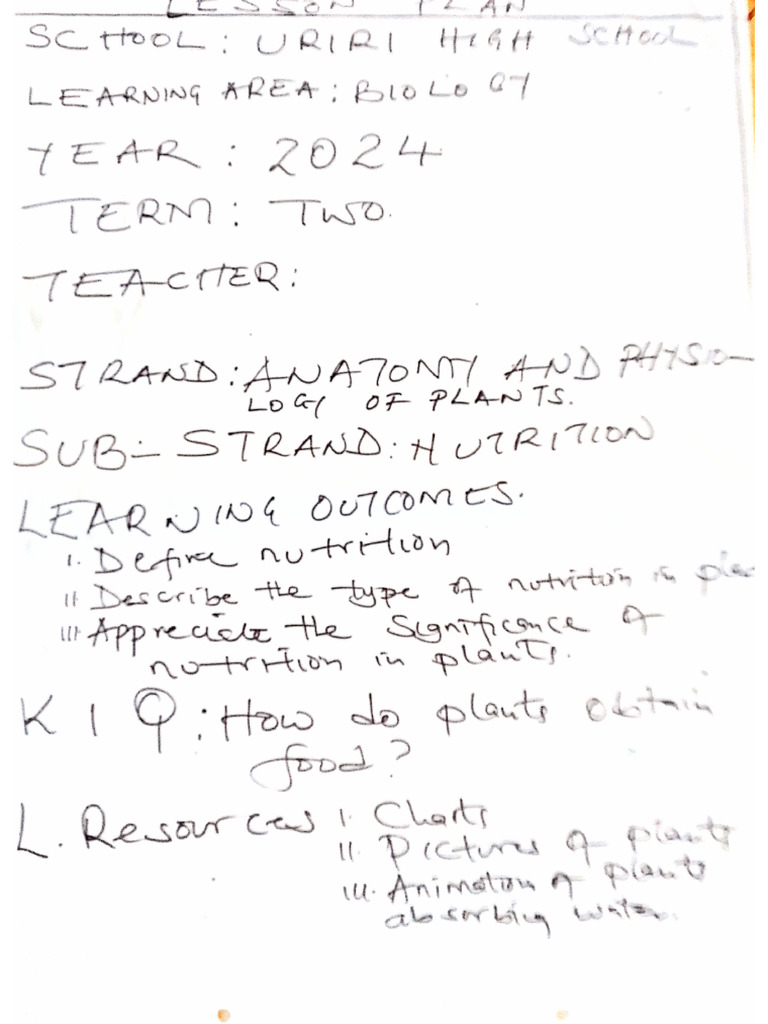 LESSON PLAN
SCHOOL: URIRI HIGH SCHOOL
LEARNING AREA: BIOLOGY
YEAR: 2024
TERM: TWO.
TEACHER:
STRAND: ANATOMY AND PHYSIO-
LOGY OF PLANTS.
SUB-STRAND: NUTRITION
LEARNING OUTCOMES.
i. Define nutrition
ii Describe the type of nutrition in
iii Appreciate the significance of
nutrition in plants.
K I Q: How do plants obtain
food?
L. Resources i. Charts
ii. Pictures of plants
iii. Animation of plants
absorbing water.